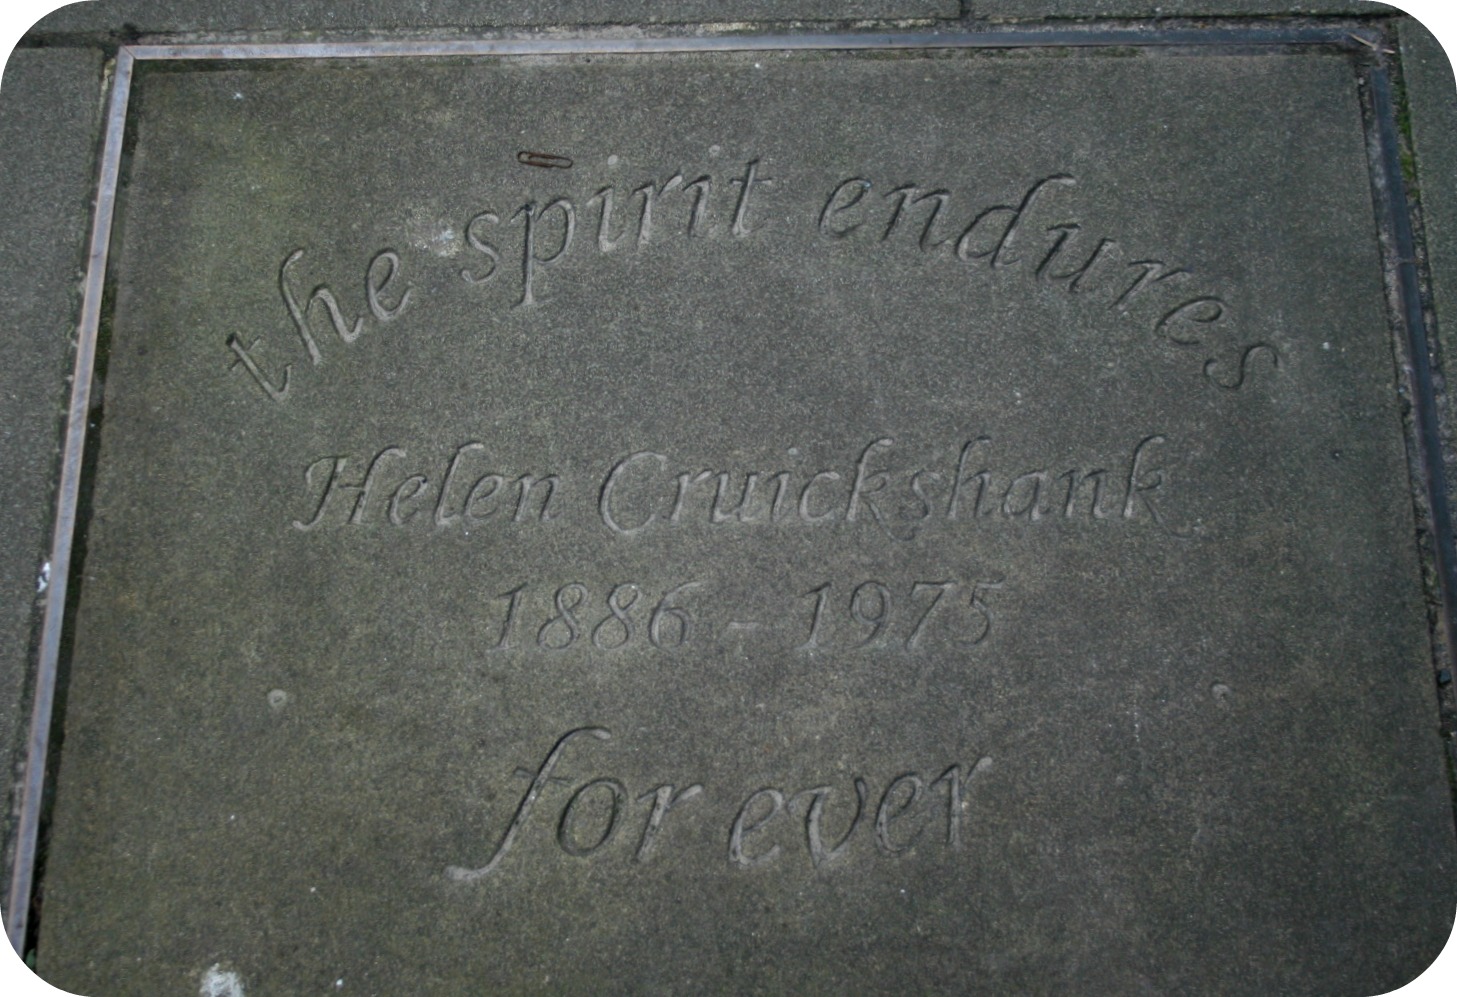 the spirit endures
Helen Cruickshank
1886 – 1975
for ever